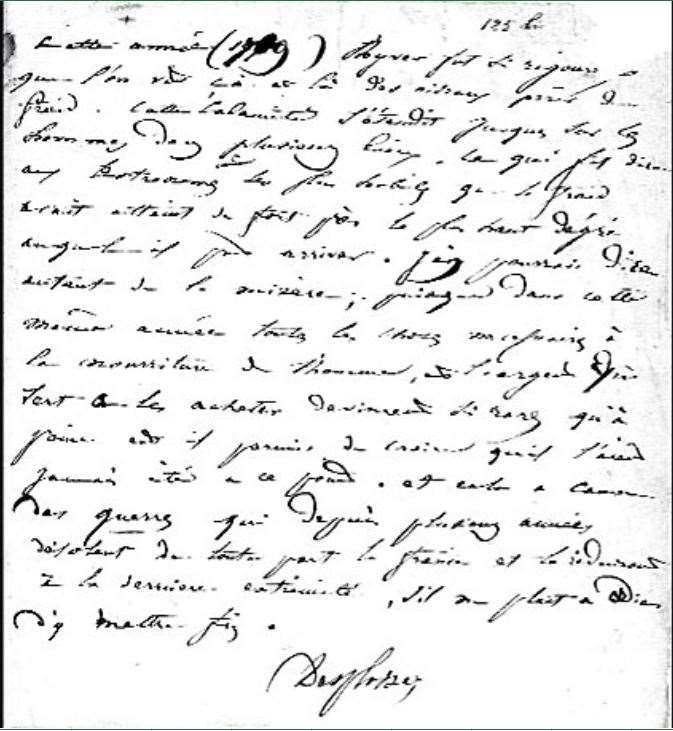 125 bis
Cette année (1709) l'hyver fut si rigoureux
que l'on vit çà et là des oiseaux péris de
froid. Cette calamité s'étendit jusques sur les
hommes dans plusieurs lieux. Ce qui fit dire
aux astronomes les plus habiles que le froid
avait atteint de fort près le plus haut dégré
auquel il put arriver. J'en pourrais dire
autant de la misère; puisque dans cette
même année toutes les choses nécessaires à
la nourriture de l'homme, et l'argent qui
sert à les acheter devinrent si rares qu'à
peine est il permis de croire qu'ils l'aient
jamais été à ce point. et cela a cause
des guerres qui depuis plusieurs années
désolent de toute part la france et la réduiront
à la dernière extrémité, s'il ne plait a Dieu
d'y mettre fin.